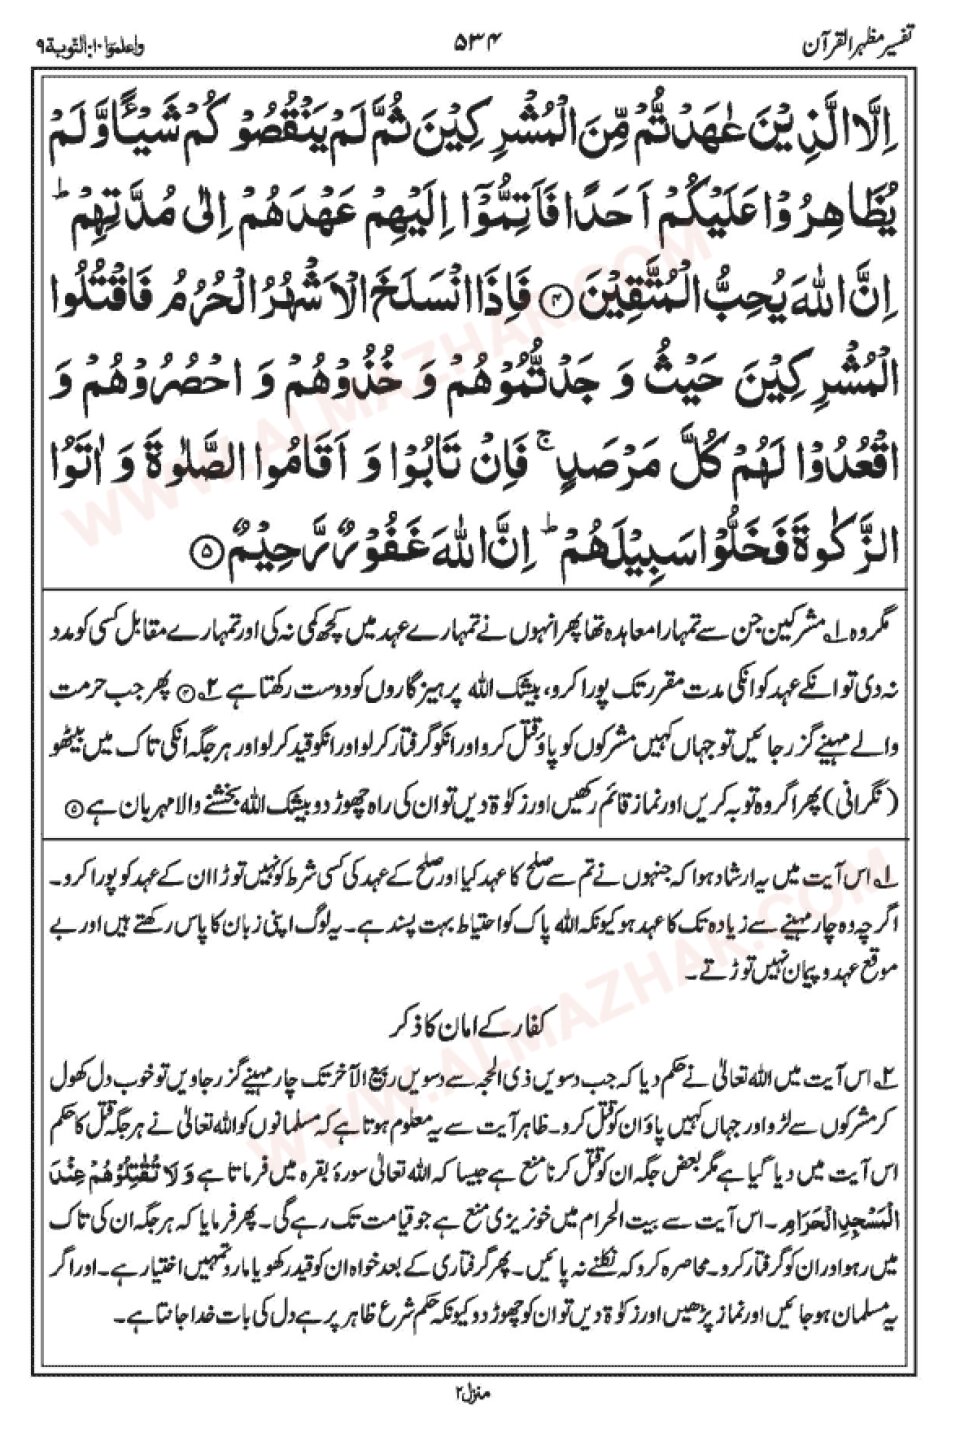 تفسیر مظہر القرآن
۵۳۴
واعلموا ۱۰ التوبۃ ۹
اِلَّا الَّذِیْنَ عٰهَدْتُّمْ مِّنَ الْمُشْرِكِیْنَ ثُمَّ لَمْ یَنْقُصُوْكُمْ شَیْـًٔا وَّ لَمْ
یُظَاهِرُوْا عَلَیْكُمْ اَحَدًا فَاَتِمُّوْۤا اِلَیْهِمْ عَهْدَهُمْ اِلٰى مُدَّتِهِمْ ؕ
اِنَّ اللّٰهَ یُحِبُّ الْمُتَّقِیْنَ ﴿۴﴾ فَاِذَا انْسَلَخَ الْاَشْهُرُ الْحُرُمُ فَاقْتُلُوا
الْمُشْرِكِیْنَ حَیْثُ وَجَدْتُّمُوْهُمْ وَ خُذُوْهُمْ وَ احْصُرُوْهُمْ وَ
اقْعُدُوْا لَهُمْ كُلَّ مَرْصَدٍ ۚ فَاِنْ تَابُوْا وَ اَقَامُوا الصَّلٰوةَ وَ اٰتَوُا
الزَّكٰوةَ فَخَلُّوْا سَبِیْلَهُمْ ؕ اِنَّ اللّٰهَ غَفُوْرٌ رَّحِیْمٌ ﴿۵﴾
مگر وہ ۱ مشرکین جن سے تمہارا معاہدہ تھا پھر انہوں نے تمہارے عہد میں کچھ کمی نہ کی اور تمہارے مقابل کسی کو مدد
نہ دی تو انکے عہد کو انکی مدت مقرر تک پورا کرو، بیشک اللہ پرہیز گاروں کو دوست رکھتا ہے ۲ ﴿۴﴾ پھر جب حرمت
والے مہینے گزر جائیں تو جہاں کہیں مشرکوں کو پاؤ قتل کرو اور انکو گرفتار کرلو اور انکو قید کرلو اور ہر جگہ انکی تاک میں بیٹھو
(نگرانی) پھر اگر وہ توبہ کریں اور نماز قائم رکھیں اور زکوٰۃ دیں تو ان کی راہ چھوڑ دو بیشک اللہ بخشنے والا مہربان ہے ﴿۵﴾
۱ اس آیت میں یہ ارشاد ہوا کہ جنہوں نے تم سے صلح کا عہد کیا اور صلح کے عہد کی کسی شرط کو نہیں توڑا ان کے عہد کو پورا کرو۔
اگرچہ وہ چار مہینے سے زیادہ تک کا عہد ہو کیونکہ اللہ پاک کو احتیاط بہت پسند ہے۔ یہ لوگ اپنی زبان کا پاس رکھتے ہیں اور بے
موقع عہد و پیمان نہیں توڑتے۔
کفار کے امان کا ذکر
۲ اس آیت میں اللہ تعالیٰ نے حکم دیا کہ جب دسویں ذی الحجہ سے دسویں ربیع الآخر تک چار مہینے گزر جاویں تو خوب دل کھول
کر مشرکوں سے لڑو اور جہاں کہیں پاؤ ان کو قتل کرو۔ ظاہر آیت سے یہ معلوم ہوتا ہے کہ مسلمانوں کو اللہ تعالیٰ نے ہر جگہ قتل کا حکم
اس آیت میں دیا گیا ہے مگر بعض جگہ ان کو قتل کرنا منع ہے جیسا کہ اللہ تعالیٰ سورۂ بقرہ میں فرماتا ہے وَ لَا تُقٰتِلُوْهُمْ عِنْدَ
الْمَسْجِدِ الْحَرَامِ۔ اس آیت سے بیت الحرام میں خونریزی منع ہے جو قیامت تک رہے گی۔ پھر فرمایا کہ ہر جگہ ان کی تاک
میں رہو اور ان کو گرفتار کرو۔ محاصرہ کرو کہ نکلنے نہ پائیں۔ پھر گرفتاری کے بعد خواہ ان کو قید رکھو یا مارو تمہیں اختیار ہے۔ اور اگر
یہ مسلمان ہو جائیں اور نماز پڑھیں اور زکوٰۃ دیں تو ان کو چھوڑ دو کیونکہ حکم شرع ظاہر پر ہے دل کی بات خدا جانتا ہے۔
منزل ۲
WWW.ALMAZHAR.COM
WWW.ALMAZHAR.COM